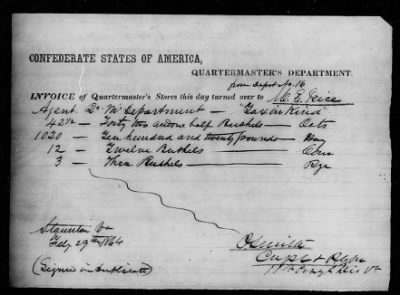 CONFEDERATE STATES OF AMERICA,
QUARTERMASTER'S DEPARTMENT.
from depot No. 16
INVOICE of Quartermaster's Stores this day turned over to M. E. Price
Agent Qr Mr Department — "Tax in Kind"
42½ — Forty two and one half Bushels — Oats
1020 — Ten hundred and twenty pounds — Hay
12 — Twelve Bushels — Corn
3 — Three Bushels — Rye
Staunton Va
Feby 29th 1864
(Signed in Duplicate)
Capt &